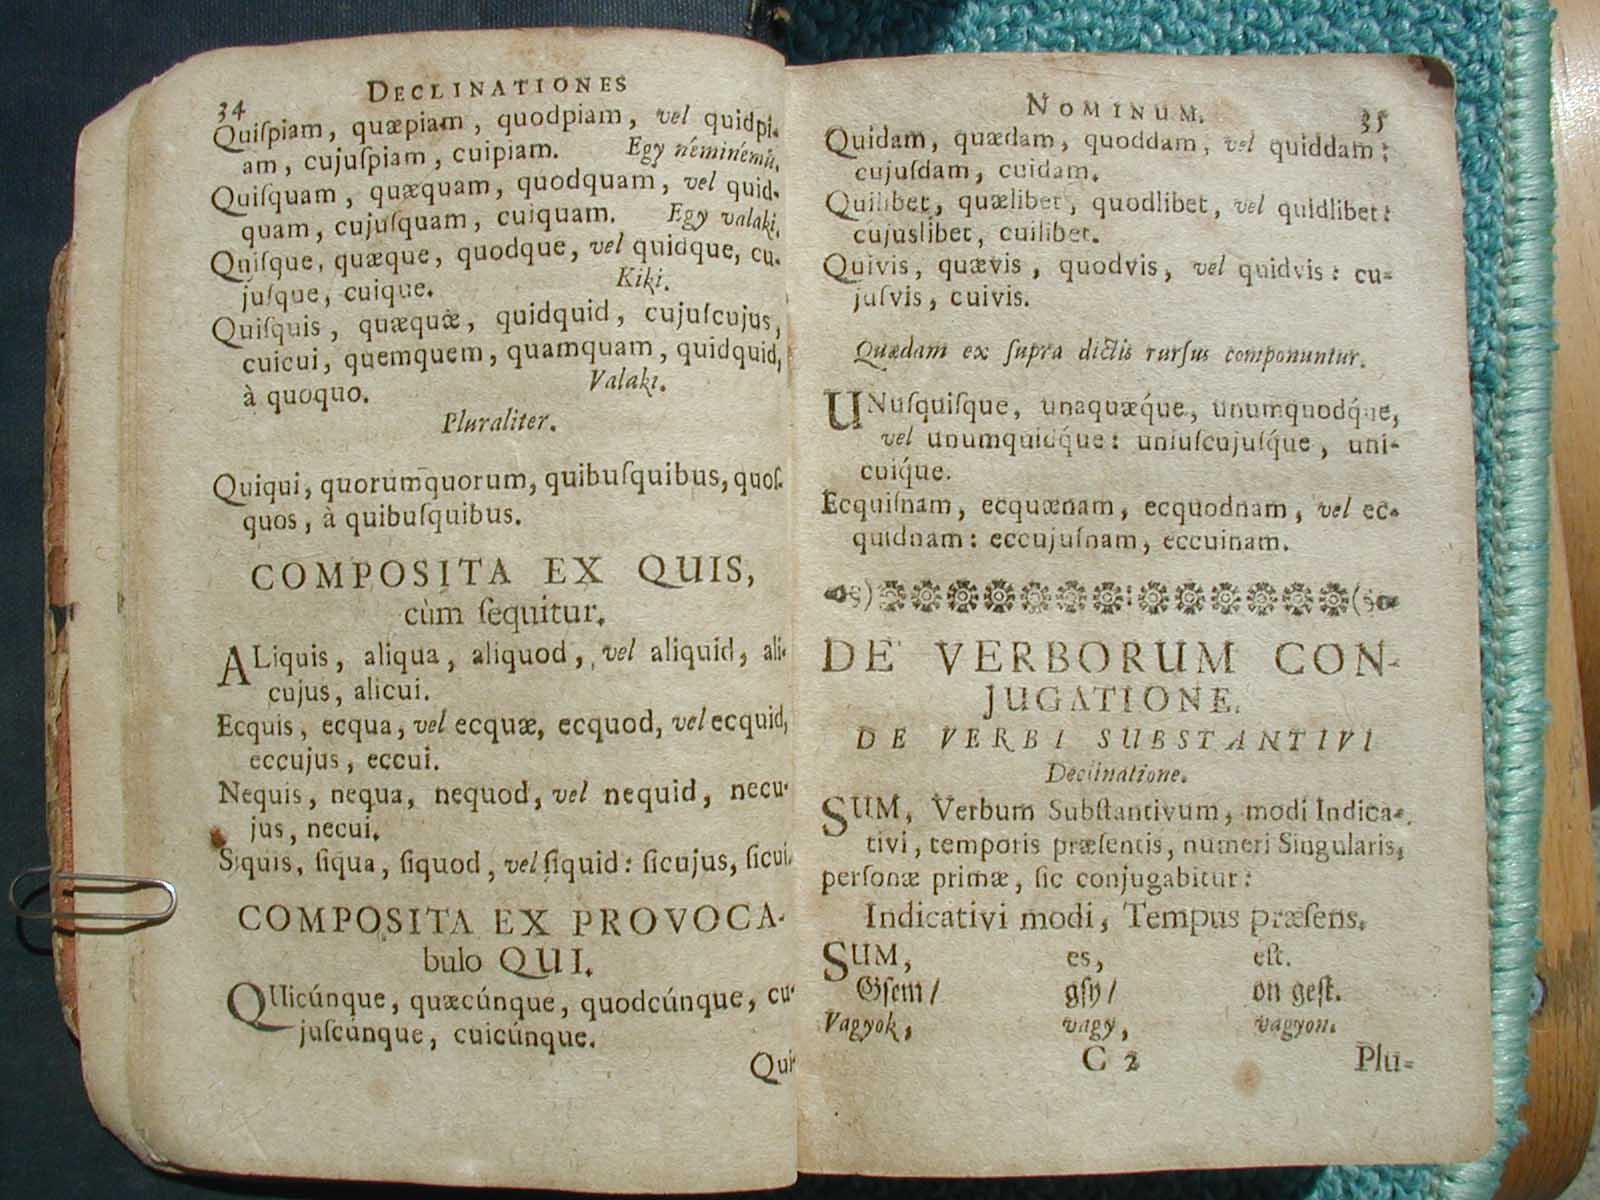 34 DECLINATIONES
Quiſpiam, quæpiam, quodpiam, vel quidpi-
am, cujuſpiam, cuipiam. Egy néminémű.
Quiſquam, quæquam, quodquam, vel quid-
quam, cujuſquam, cuiquam. Egy valaki.
Quiſque, quæque, quodque, vel quidque, cu-
juſque, cuique. Kiki.
Quiſquis, quæquæ, quidquid, cujuſcujus,
cuicui, quemquem, quamquam, quidquid,
à quoquo. Valaki.
Pluraliter.
Quiqui, quorumquorum, quibuſquibus, quoſ-
quos, à quibuſquibus.
COMPOSITA EX QUIS,
cùm ſequitur.
ALiquis, aliqua, aliquod, vel aliquid, ali-
cujus, alicui.
Ecquis, ecqua, vel ecquæ, ecquod, vel ecquid,
eccujus, eccui.
Nequis, nequa, nequod, vel nequid, necu-
jus, necui.
Siquis, ſiqua, ſiquod, vel ſiquid: ſicujus, ſicui.
COMPOSITA EX PROVOCA-
bulo QUI.
QUicúnque, quæcúnque, quodcúnque, cu-
juſcúnque, cuicúnque.
Qui-
NOMINUM. 35
Quidam, quædam, quoddam, vel quiddam:
cujuſdam, cuidam.
Quilibet, quælibet, quodlibet, vel quidlibet:
cujuslibet, cuilibet.
Quivis, quævis, quodvis, vel quidvis: cu-
juſvis, cuivis.
Quædam ex ſupra dictis rurſus componuntur.
UNuſquiſque, unaquæq́ue, unumquodq́ue,
vel unumquidq́ue: uniuſcujuſq́ue, uni-
cuiq́ue.
Ecquiſnam, ecquænam, ecquodnam, vel ec-
quidnam: eccujuſnam, eccuinam.
DE VERBORUM CON-
JUGATIONE.
DE VERBI SUBSTANTIVI
Declinatione.
SUM, Verbum Subſtantivum, modi Indica-
tivi, temporis præſentis, numeri Singularis,
perſonæ primæ, ſic conjugabitur:
Indicativi modi, Tempus præſens.
SUM, es, eſt.
Gſem/ gſy/ on geſt.
Vagyok, vagy, vagyon.
C 2 Plu-